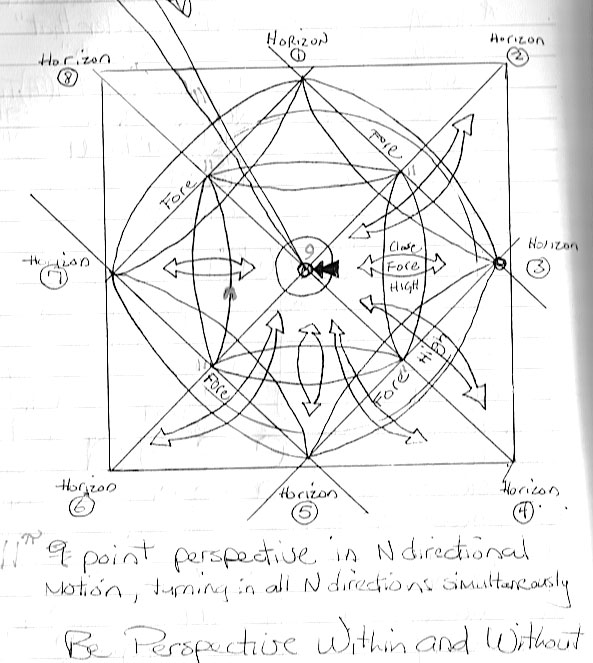 HORIZON
①
Horizon
②
Horizon
⑧
Fore
Fore
9
Close
Fore
HIGH
Horizon
③
Horizon
⑦
High
Fore
Fore
Horizon
⑥
Horizon
⑤
Horizon
④
9 point perspective in N directional
Motion, turning in all N directions simultaneously
Be Perspective Within and Without